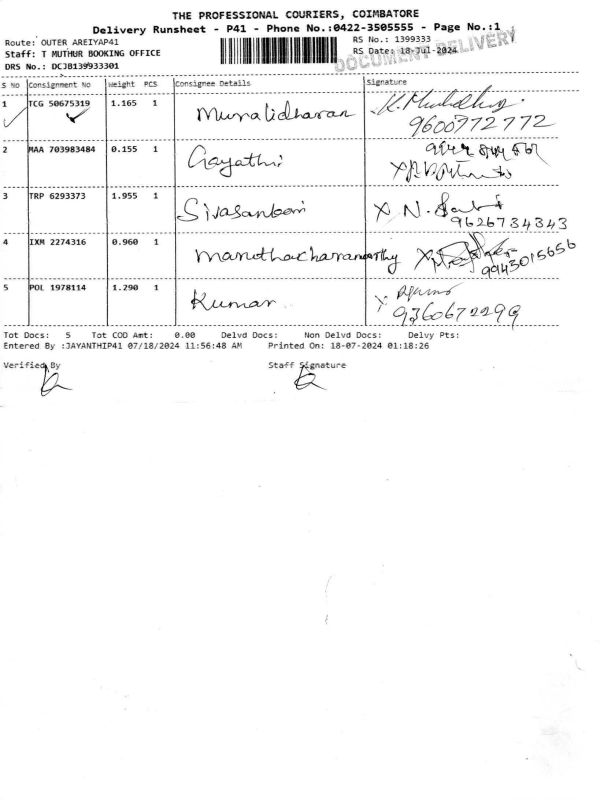 THE PROFESSIONAL COURIERS, COIMBATORE
Delivery Runsheet - P41 - Phone No.:0422-3505555 - Page No.:1
Route: OUTER AREIYAP41 RS No.: 1399333
Staff: T MUTHUR BOOKING OFFICE RS Date: 18-Jul-2024
DOCUMENT DELIVERY
DRS No.: DCJB139933301
S No Consignment No Weight PCS Consignee Details Signature
1 TCG 50675319 1.165 1 Muralidharan
9600772772
2 MAA 703983484 0.155 1 Gayathri
3 TRP 6293373 1.955 1 Sivasankari X N.
9626734343
4 IXM 2274316 0.960 1 Maruthachamoorthy X
9943015656
5 POL 1978114 1.290 1 Kumar X
9360672299
Tot Docs: 5 Tot COD Amt: 0.00 Delvd Docs: Non Delvd Docs: Delvy Pts:
Entered By :JAYANTHIP41 07/18/2024 11:56:48 AM Printed On: 18-07-2024 01:18:26
Verified By Staff Signature